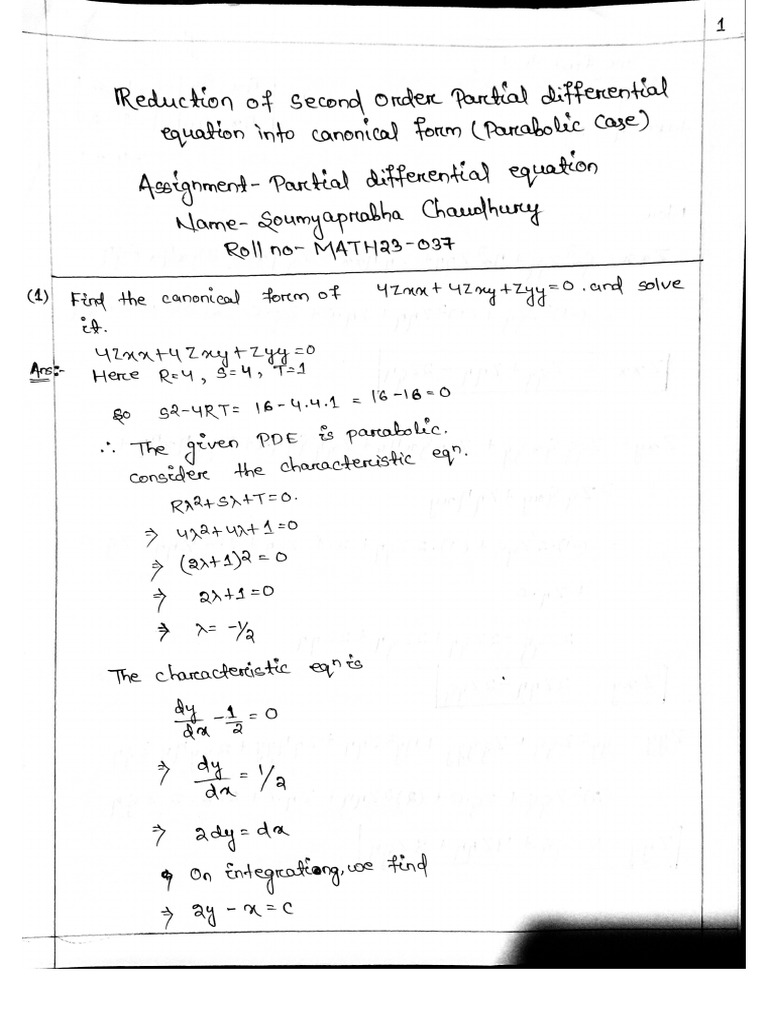 1
Reduction of second order Partial differential
equation into canonical form (Parabolic Case)
Assignment- Partial differential equation
Name- Soumyaprabha Chaudhury
Roll no- MATH23-037
(1) Find the canonical form of 4Zxx+4Zxy+Zyy=0. and solve
it.
4Zxx+4Zxy+Zyy=0
Ans:- Here R=4, S=4, T=1
So S2-4RT= 16-4.4.1 = 16-16=0
∴ The given PDE is parabolic.
consider the characteristic eqn.
Rλ2+Sλ+T=0.
⇒ 4λ2+4λ+1=0
⇒ (2λ+1)2=0
⇒ 2λ+1=0
⇒ λ= -1/2
The characteristic eqn is
dy/dx - 1/2 = 0
⇒ dy/dx = 1/2
⇒ 2dy=dx
On integrationg, we find
⇒ 2y - x = c